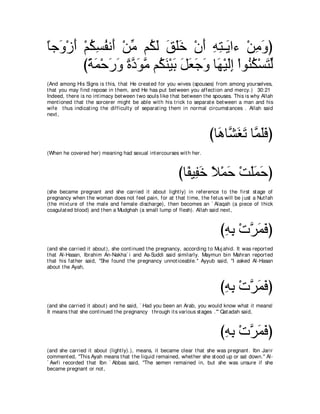 (وَمِنْ ءَايَـتِهِ أَنْ خَلَقَ لَكُم مِّنْ أَنفُسِكُمْ أَزْوَجاً
لِّتَسْكُنُواْ إِلَيْهَا وَجَعَلَ بَيْنَكُم مَّوَدَّةً وَرَحْمَةً)
(And among His Signs is this, that He created for you wives (spouses) from among yourselves,
that you may find repose in them, and He has put between you affection and mercy.) 30:21
Indeed, there is no intimacy between two souls like that between the spouses. This is why Allah
mentioned that the sorcerer might be able with his trick to separate between a man and his
wife thus indicating the difficulty of separating them in normal circumstances . Allah said
next,
(فَلَمَّا تَغَشَّاهَا)
(When he covered her) meaning had sexual intercourse with her.
(حَمَلَتْ حَمْلاً خَفِيفًا)
(she became pregnant and she carried it about lightly) in reference to the first stage of
pregnancy when the woman does not feel pain, for at that time, the fetus will be just a Nutfah
(the mixture of the male and female discharge), then becomes an `Alaqah (a piece of thick
coagulated blood) and then a Mudghah (a small lump of flesh). Allah said next,
(فَمَرَّتْ بِهِ)
(and she carried it about), she continued the pregnancy, according to Mujahid. It was reported
that Al-Hasan, Ibrahim An-Nakha`i and As-Suddi said similarly. Maymun bin Mahran reported
that his father said, "She found the pregnancy unnoticeable.'' Ayyub said, "I asked Al-Hasan
about the Ayah,
(فَمَرَّتْ بِهِ)
(and she carried it about) and he said, `Had you been an Arab, you would know what it means!
It means that she continued the pregnancy through its various stages .''' Qatadah said,
(فَمَرَّتْ بِهِ)
(and she carried it about (lightly).), means, it became clear that she was pregnant. Ibn Jarir
commented, "This Ayah means that the liquid remained, whether she stood up or sat down.'' Al-
`Awfi recorded that Ibn `Abbas said, "The semen remained in, but she was unsure if she
became pregnant or not,